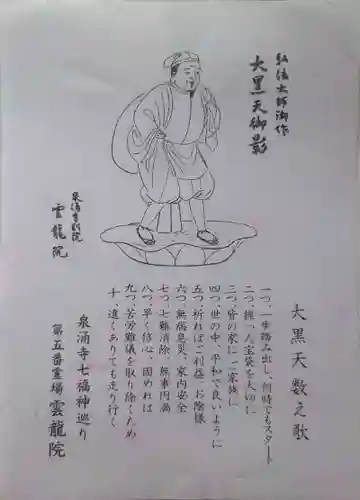 弘法大師御作
大黒天御影
泉涌寺別院
雲龍院
大黒天数え歌
一つ、一歩踏み出し、何時でもスタート
二つ、握った宝袋を大切に
三つ、皆の家に「家族」に
四つ、世の中、平和で良いように
五つ、祈ればご利益、お陰様
六つ、無病息災、家内安全
七つ、七難消除、無事円満
八つ、早く信心、固めれば
九つ、苦労難儀を取り除くため
十、遠くありても走り行く
泉涌寺七福神巡り
第五番霊場 雲龍院